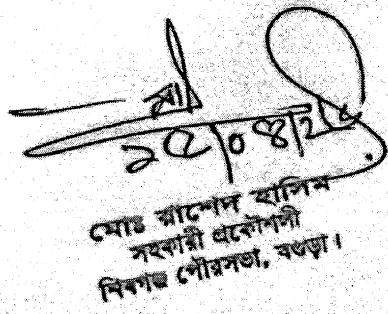 ২৫/০৪/২৪
মোঃ রাশেদ হাসিম
সহকারী প্রকৌশলী
শিবগঞ্জ পৌরসভা, বগুড়া।